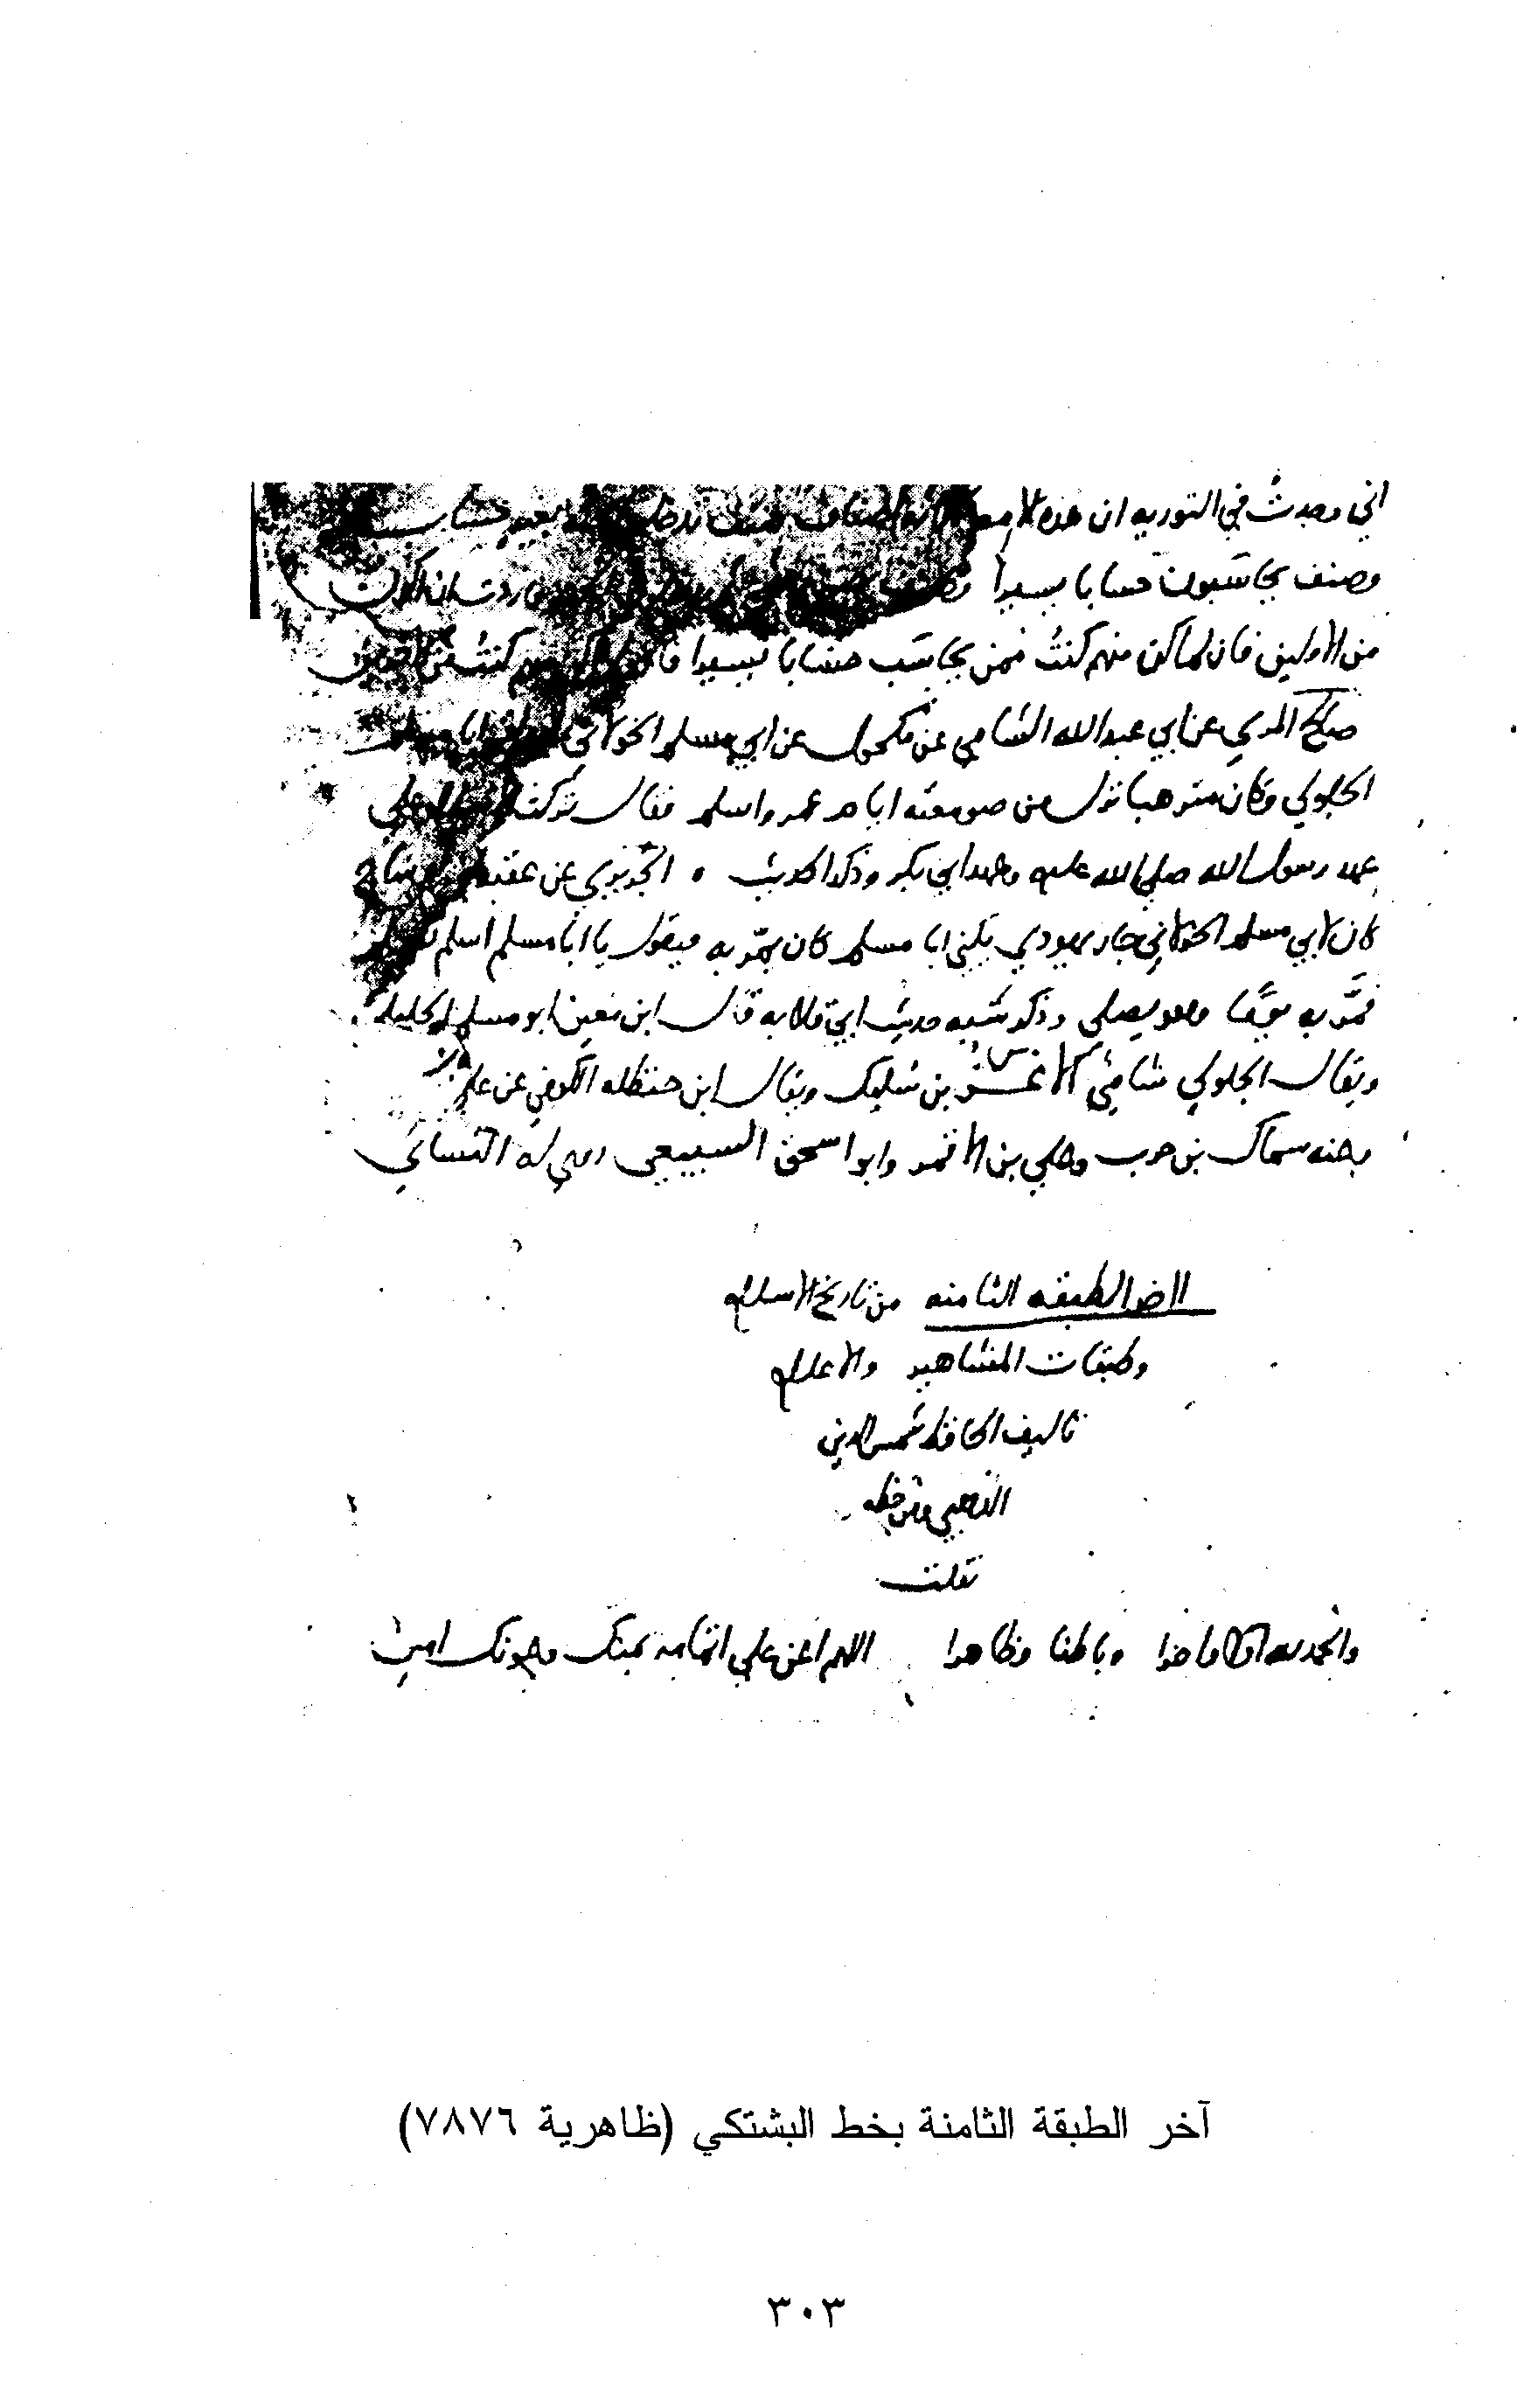 اني وجدت في التوريه ان هذه الامه ثلاثة اصناف حساب
وصنف يحاسبون حسابا يسيرا فاردت ان اكون
من الاولين فان لم اكن منهم كنت ممن يحاسب حسابا يسيرا كنت من
صالح المري عن ابي عبد الله الشامي عن مكحول عن ابي مسلم الخولاني ابا مسلم
الجلولي وكان مترهبا نزل من صومعته ايام عمر واسلم فقال تركت علي
عهد رسول الله صلى الله عليه وعهد ابي بكر وذكر الحديث ٠ الجريري عن عقبه
كان لابي مسلم الخولاني جار يهودي يكنى ابا مسلم كان يمر به فيقول يا ابا مسلم اسلم تسلم
فمر به يوما وهو يصلي وذكر شبيه حديث ابي قلابه قال ابن معين ابو مسلم الجليلي
ويقال الجلولي شامي الاغر بن سليك ويقال ابن حنظله الكوفي عن علي
وعنه سماك بن حرب وعلي بن الاقمر وابو اسحق السبيعي روى له النسائي
اخر الطبقه الثامنه من تاريخ الاسلام
وطبقات المشاهير والاعلام
تاليف الحافظ شمس الدين
الذهبي ومن خطه
نقلت
والحمد لله اولا واخرا وباطنا وظاهرا اللهم اعن علي اتمامه بمنك وعونك امين
آخر الطبقة الثامنة بخط البشتكي (ظاهرية ٧٨٧٦)
٣٠٣